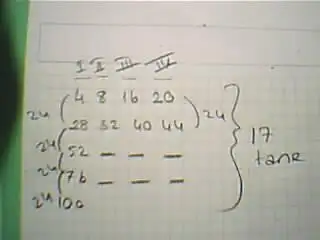 I II III IV
4 8 16 20
24 24
28 32 40 44
24
52 — — —
24
76 — — —
24
100
17
tane